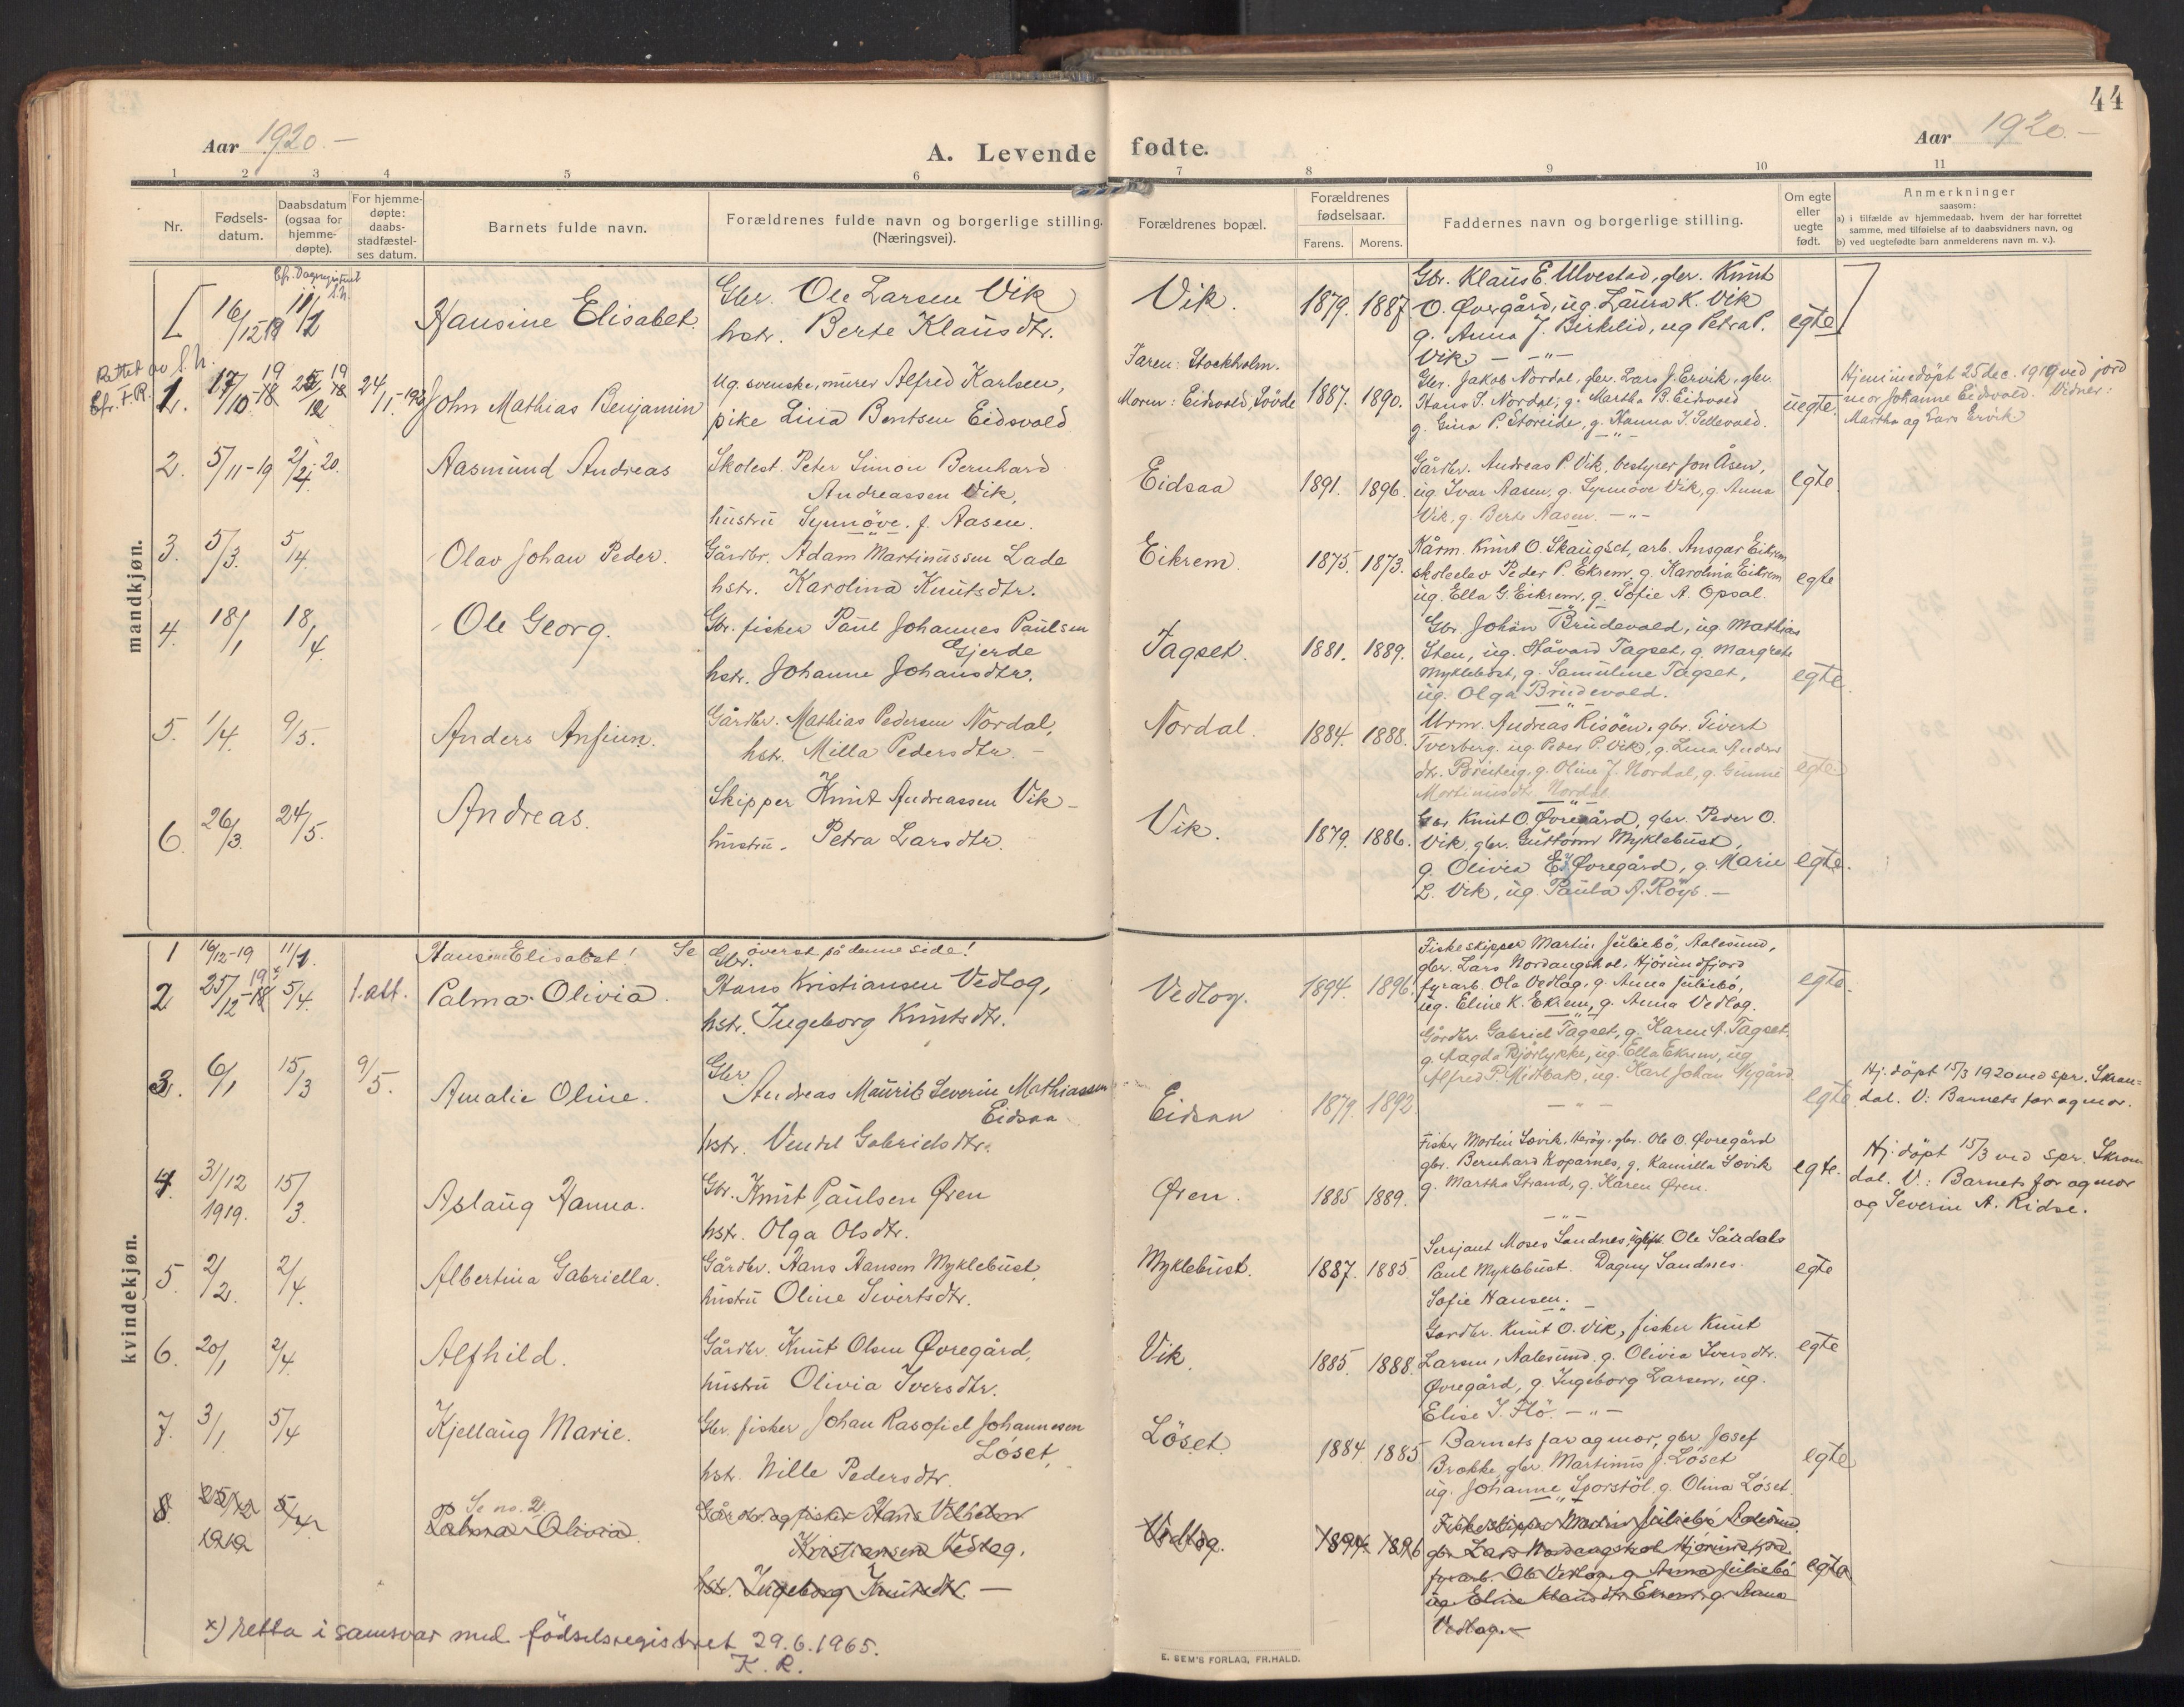 44
Aar 1920.-
A. Levende fødte.
Aar 1920.-
1 2 3 4 5 6 7 8 9 10 11
Nr.
Fødsels-
datum.
Daabsdatum
(ogsaa for
hjemme-
døpte).
For hjemme-
døpte:
daabs-
stadfæstel-
ses datum.
Barnets fulde navn.
Forældrenes fulde navn og borgerlige stilling.
(Næringsvei).
Forældrenes bopæl.
Forældrenes
fødselsaar.
Farens. Morens.
Faddernes navn og borgerlige stilling.
Om egte
eller
uegte
født.
Anmerkninger
saasom:
a) i tilfælde av hjemmedaab, hvem der har forrettet
samme, med tilføielse af to daabsvidners navn, og
b) ved uegtefødte barn anmelderens navn m. v.).
mandkjøn.
Efr. Dagregistret
S.N.
[ 16/12-19 11/1 Hansine Elisabet.
Gbr. Ole Larsen Vik
hstr. Berte Klausdtr.
Vik. 1879. 1887
Gbr. Klaus E. Ulvestad, gbr. Knut
O. Øvregård, ug. Laura K. Vik
g. Anna J. Birkelid, ug Petra P.
Vik - -"-
egte ]
Rettet av S.N.
Efr. F.R.
1. 17/10-19 25/12 19 24/1-1920 John Mathias Benjamin
Ug. svenske, murer Alfred Karlsen,
pike Lina Bentsen Eidsvold
Faren: Stockholm.
Moren: Eidsvold, Sövde 1887. 1890.
Gbr. Jakob Nordal, gbr. Lars J. Ervik, gbr.
Hans S. Nordal, g. Martha B. Eidsvold
g. Gina P. Storeide, g. Hanna I. Pettevold.
-"-
uegte.
Hjemmedöpt 25 dec. 1919 ved jord
mor Johanne Eidsvold. Vidner:
Martha og Lars Ervik
2. 5/11-19 2/4-20. Aasmund Andreas
Skolest. Peter Simon Bernhard
Andreassen Vik,
hustru Synnöve. f. Aasen.
Eidsaa 1891. 1896.
Gårdbr. Andreas P. Vik, bestyrer Jon Åsen,
ug. Ivar Aasen, g. Synnöve Vik, g. Anna
Vik, g. Berte Aasen. -"-
egte.
3. 5/3. 5/4. Olav Johan Peder.
Gårdbr. Adam Martinussen Lade
hstr. Karolina Knutsdtr.
Eikrem. 1875. 1873.
Kårm. Knut O. Skaugset, arb. Ansgar Eikrem
skoleelev Peder P. Ekrem, g. Karolina Eikrem
ug. Ella G. Eikrem, g. Sofie A. Opsal.
-"-
egte
4. 18/1 18/4 Ole Georg.
Gbr. fisker Paul Johannes Paulsen
Gjerde
hstr. Johanne Johansdtr.
Tagset. 1881. 1889.
Gbr Johan Brudevold, ug Mathias
Sten, ug. Håvard Tagset, g. Margrete
Myklebost, g. Samuline Tagset,
ug. Olga Brudevold.
-"-
egte.
5. 1/4. 9/5. Anders Anfinn.
Gårdbr. Mathias Pedersen Nordal,
hstr. Milla Pedersdtr. -
Nordal. 1884. 1888.
Urm. Andreas Risöen, gbr. Sivert
Tverberg, ug. Peder P. Vik, g. Lina Anders
dtr. Breiteig, g. Oline J. Nordal, g. Gunni
Martinusdtr. Nordal.
-"-
egte
6. 26/3. 24/5. Andreas.
Skipper Knut Andreassen Vik -
hustru. Petra Larsdtr.
Vik. 1879. 1886.
Gbr Knut O. Øvregård, gbr. Peder O.
Vik, gbr. Guttorm Myklebust,
g. Olivia E. Øvregård, g. Marie
L. Vik, ug. Paula A. Röys. -
egte.
kvindekjøn.
1 16/12-19 11/1. Hansine Elisabet! Se överst på denne side!
2 25/12-19 x 5/4 1. att. Palma Olivia.
Gbr.
Hans Kristiansen Vedlog,
hstr. Ingeborg Knutsdtr.
Vedlog. 1894. 1896.
Fiskeskipper Martin Juliebö, Aalesund,
gbr. Lars Nordangshol. Hjörundfjord
fyrarb. Ola Vedlog, g. Anna Juliebö,
ug. Eline K. Ekrem, g. Anna Vedlog.
-"-
egte.
3. 6/1 15/3 9/5. Amalie Oline.
Gbr
Andreas Maurits Severin Mathiassen
Eidsaa
hstr. Vendel Gabrielsdtr.
Eidsaa 1879. 1892.
Gårdbr. Gabriel Tagset, g. Karen A. Tagset,
g. Magda Bjørlykke, ug. Ella Ekrem, ug
Alfred P. Midtbak, ug. Karl Johan Nygård
-"-
egte
Hj. döpt 15/3 1920 ved spr. Skran-
dal. V: Barnets far og mor.
4. 31/12 1919. 15/3 Aslaug Hanna.
Gbr. Knut Paulsen Øren
hstr. Olga Olsdtr.
Øren. 1885 1889.
Fisker Martin Sævik, Herøy, gbr. Ole O. Øvregård
gbr. Bernhard Koparnes, g. Kamilla Sævik
g. Martha Strand, g. Karen Øren.
-"-
egte.
Hj. döpt 15/3 ved spr. Skran
dal. V.: Barnets far og mor
og Severin A. Ridse.
5 2/2. 2/4. Albertina Gabriella.
Gårdbr. Hans Hansen Myklebust
hustru Oline Sivertsdtr.
Myklebust. 1887. 1885.
Sersjant Moses Sandnes, ugift. Ole Sårdals
Paul Myklebust. Dagny Sandnes.
Sofie Hansen.
-"-
egte
6. 20/1 2/4 Alfhild.
Gårdbr. Knut Olsen Øvregård,
hustru Olivia Iversdtr.
Vik. 1885. 1888.
Gardbr. Knut O. Vik, fisker Knut
Larsen, Aalesund. g. Olivia Iversdtr.
Øvregård, g. Ingeborg Larsen, ug.
Elise I. Flö. - "-
egte
7. 3/1 5/4 Kjellaug Marie.
Gbr. fisker Johan Rasofiel Johannesen
Löset,
hstr. Nille Pedersdtr.
Löset. 1884. 1885
Barnets far og mor, gbr. Josef
Brokke, gbr. Martinus J. Löset
ug. Johanne Sporstöl. g. Olina Löset.
-"-
egte
8. 25/12 1919 5/4 Se no. 2.
Palma Olivia.
Gårdbr og fisker Hans Vilhelm
Kristiansen Vedlog.
hstr. Ingeborg Knutsdtr. -
Vedlog. 1894. 1896
Fiskeskipper Martin Juliebö Aalesund.
gbr. Lars Nordangshol Hjörundfjord.
fyrarb. Ola Vedlog, g. Anna Juliebö
ug. Eline Klausdtr. Ekrem, g. Anna
Vedlog. -
egte
x) retta i samsvar med födselsregistret 29.6.1965.
K. R.
E. SEM'S FORLAG, FR.HALD.